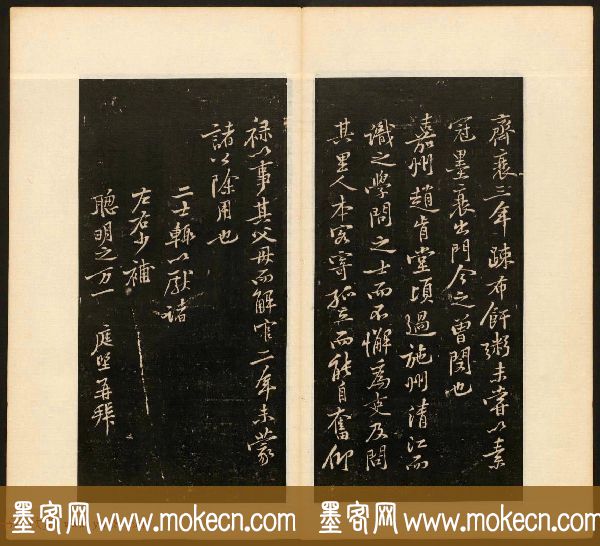 齊衰三年疎布飦粥未嘗以素
冠墨衰出門今之曾閔也
嘉州趙肯堂頃過施州清江而
識之學問之士而不懈為吏及問
其里人本客寄孤立而能自奮仰
祿以事其父母而解官二年未蒙
諸公除用也
二士輒以獻諸
左右少補
聰明之万一 庭堅再拜
墨客网 www.mokecn.com 墨客网 www.mokecn.com